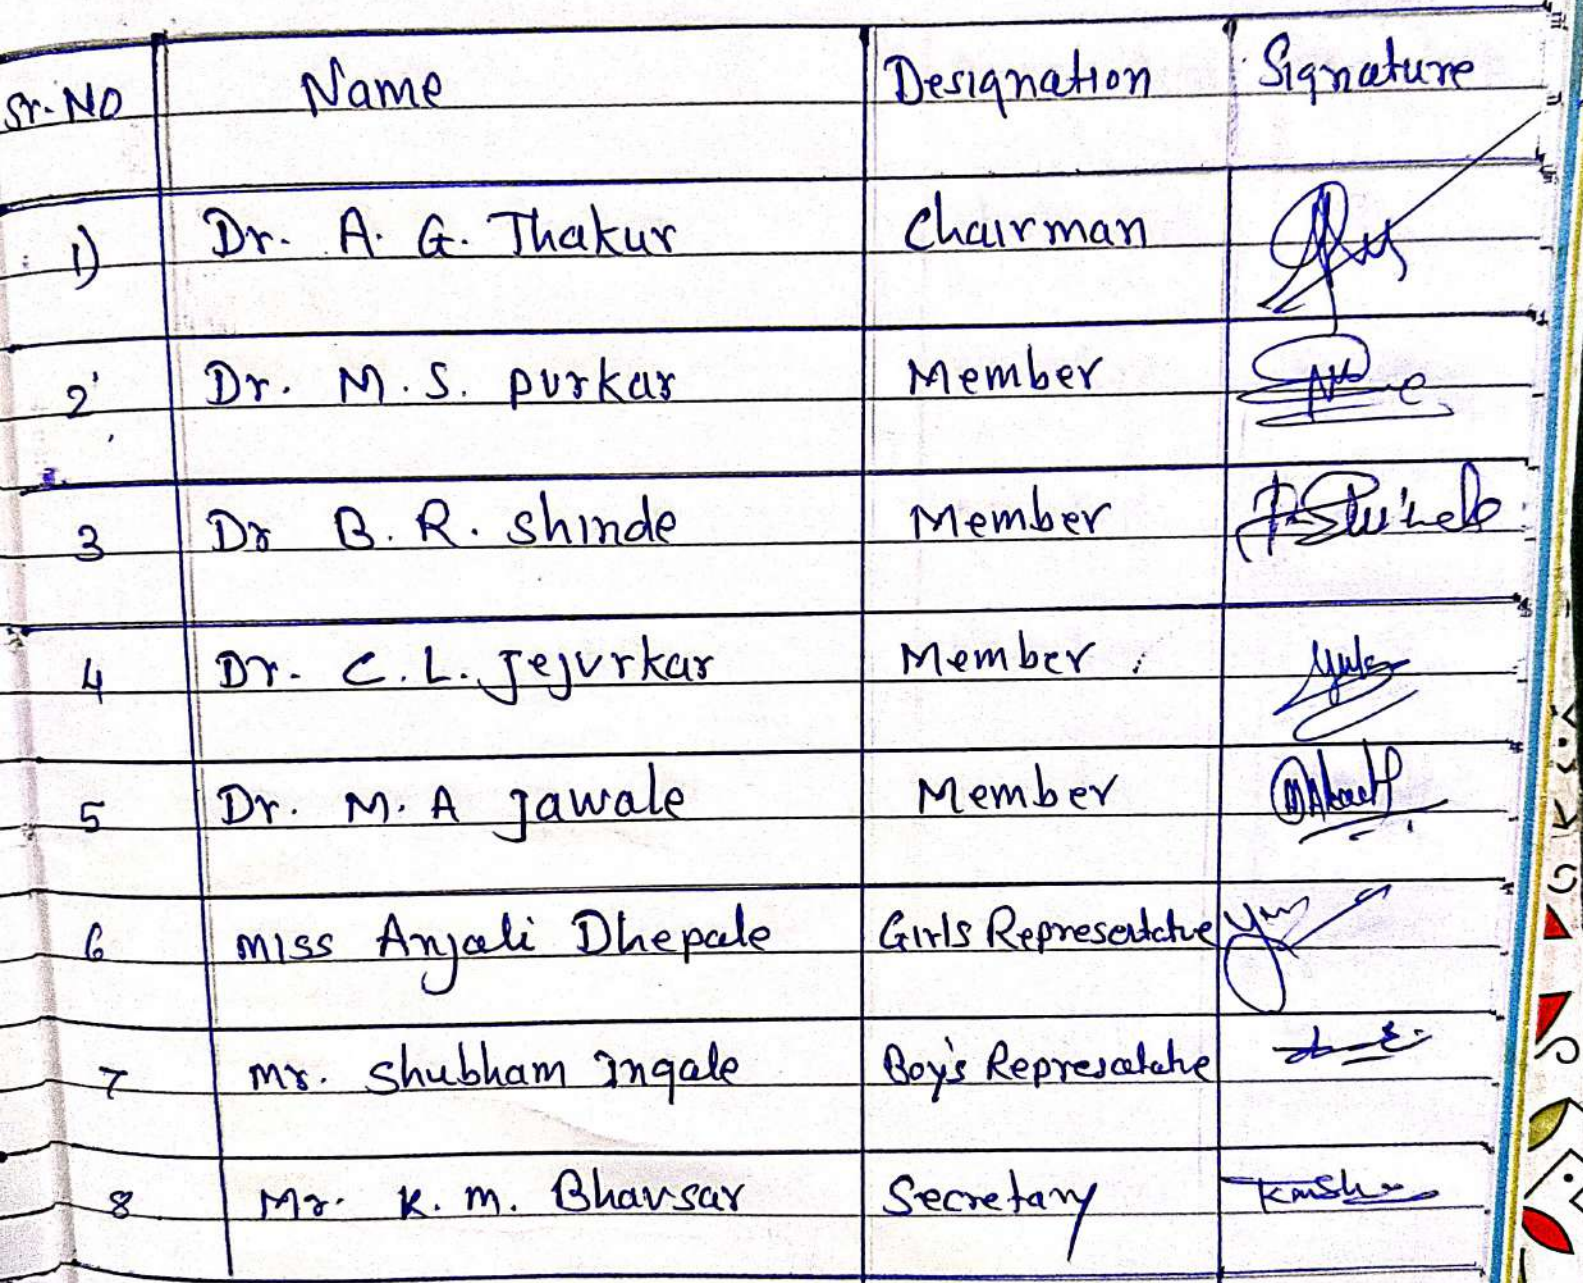 Sr. No Name Designation Signature
1) Dr. A. G. Thakur Chairman
2 Dr. M. S. Purkar Member
3 Dr B. R. Shinde Member
4 Dr. C. L. Jejurkar Member
5 Dr. M. A Jawale Member
6 Miss Anjali Dhepale Girls Representative
7 Mr. Shubham Ingale Boy's Representative
8 Mr. K. M. Bhavsar Secretary